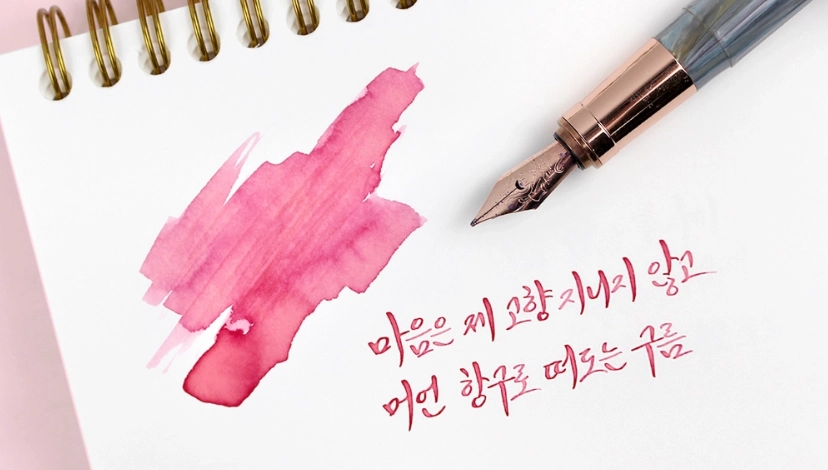 마음은 제 고향 지니지 않고
머언 항구로 떠도는 구름